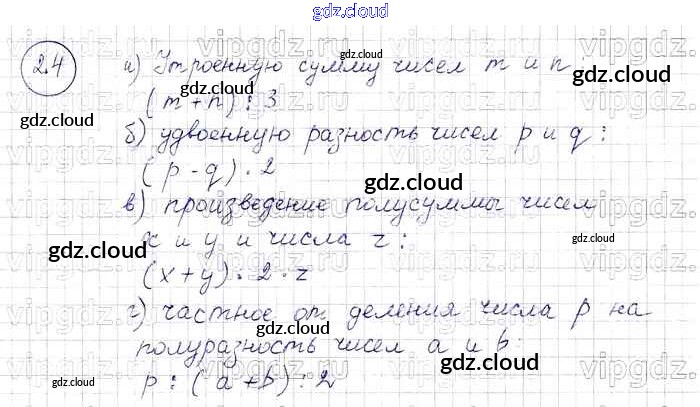 gdz.cloud
2.4
а) Утроенную сумму чисел m и n:
(m + n) : 3
б) удвоенную разность чисел p и q:
(p - q) · 2
в) произведение полусуммы чисел
x и y и числа z:
(x + y) : 2 · z
г) частное от деления числа p на
полуразность чисел a и b:
p : (a + b) : 2
gdz.cloud
gdz.cloud
gdz.cloud
gdz.cloud
gdz.cloud
gdz.cloud
gdz.cloud
gdz.cloud